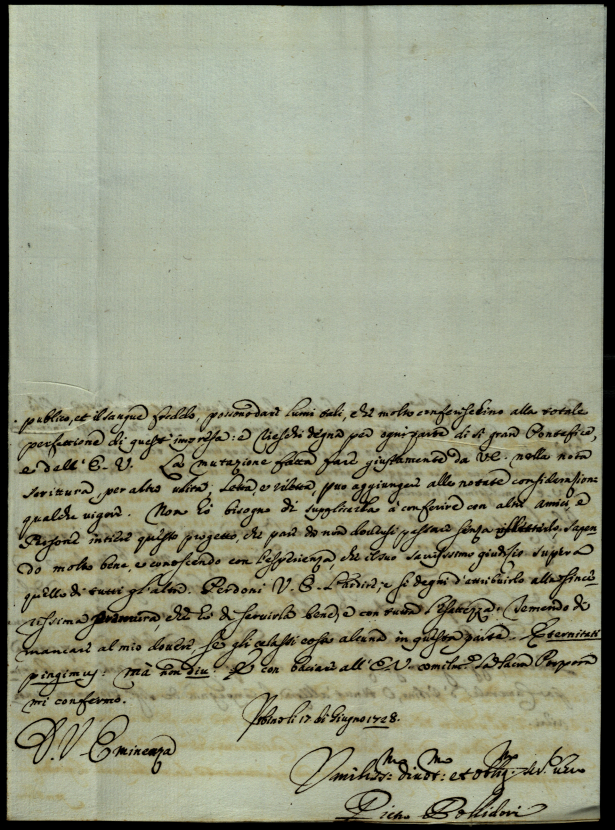 publico, et il sangue freddo, possono dare lumi tali, che molto conferiscbino alla totale
perfezzione di quest'impresa: e rieschi degna per ogni parte di si gran Pontefice,
e dall'E. V. La mutazione fatta fare giustamente da VE. nella nota
scrittura, per altro utile, letta e riletta, può aggiunger alle notate considerazioni
qualche vigore. Non hò bisogno di supplicarla à conferire con altri amici, e
Persone intese questo progetto, che pare di non doversi passare senza sapen-
do molto bene, e conoscendo con l'esperienza, che il suo savissimo giudizio supera
quello di tutti gl'altri. Perdoni V. E. l'ardire, e si degni d'attribuirlo alla since-
rissima premura che hò di servirla bene, e con tutta l'esattezza. Temendo di
mancare al mio dovere, se gli celassi cosa alcuna in questa parte. Eternitati
pingimus: mà non diu. E con baciare all'E. V. umilm.e la Sacra Porpora
mi confermo.
li 17 di Giugno 1728.
D. V. Eminenza
Umiliss.mo divot.mo et obblig.mo ser.re vero
Pietro Pollidori